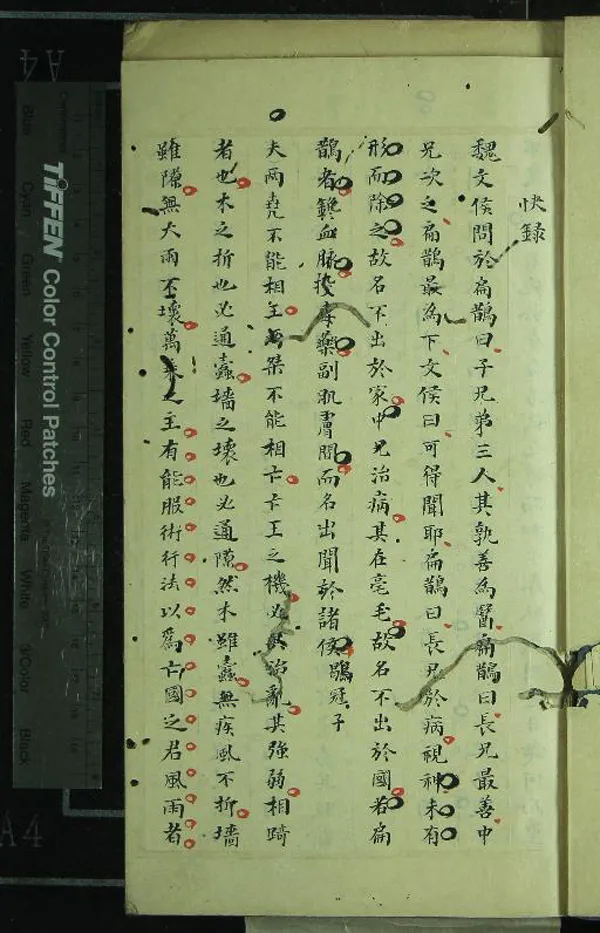 快録
魏文侯問於扁鵲曰子兄弟三人其孰善為醫扁鵲曰長兄最善中
兄次之扁鵲最為下文侯曰可得聞耶扁鵲曰長兄於病視神未有
形而除之故名不出於家中兄治病其在毫毛故名不出於國若扁
鵲者鑱血脉投毒藥副肌膚間而名出聞於諸侯鶡冠子
夫兩堯不能相王兩桀不能相亡亡王之機必其治亂其強弱相踦
者也木之折也必通蠹墻之壞也必通隙然木雖蠹無疾風不折墻
雖隙無大雨不壞萬乘之主有能服術行法以為亡國之君風雨者
TIFFEN Color Control Patches
Blue
Cyan
Green
Yellow
Red
Magenta
White
3/Color
Black
A4
A4